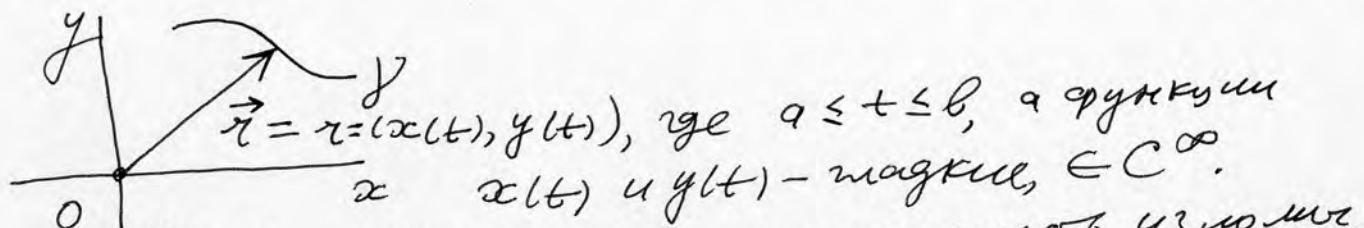 y
γ
r⃗ = r = (x(t), y(t)), где a ≤ t ≤ b, а функции
x x(t) и y(t) – гладкие, ∈ C^∞.
0 изломы